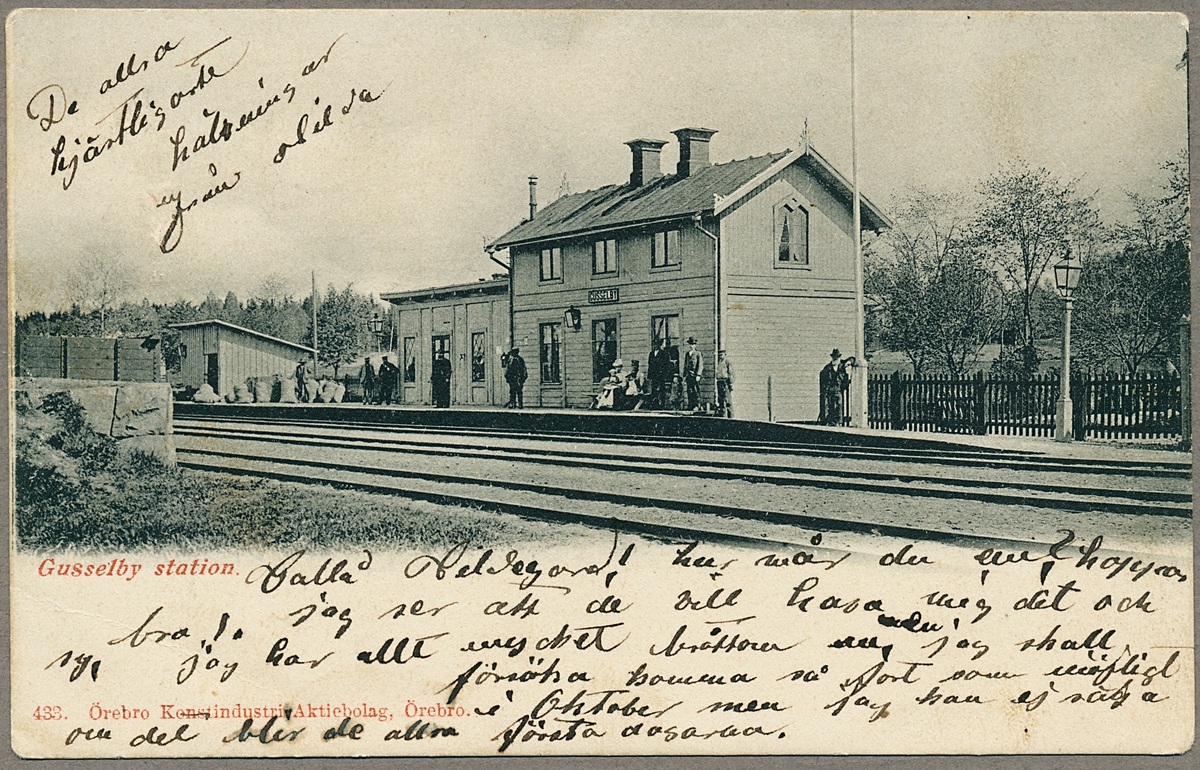 De allra
hjärtligaste
hälsningar
från Hilda
GUSSELBY
Gusselby station.
hur mår du nu? hoppas
bra! jag ser att de vill hava mig dit och
sy, jag har allt mycket bråttom nu, men jag skall
försöka komma så fort som möjligt
433. Örebro Konstindustri Aktiebolag, Örebro.
i Oktober men jag kan ej säga
om det blir de allra första dagarna.